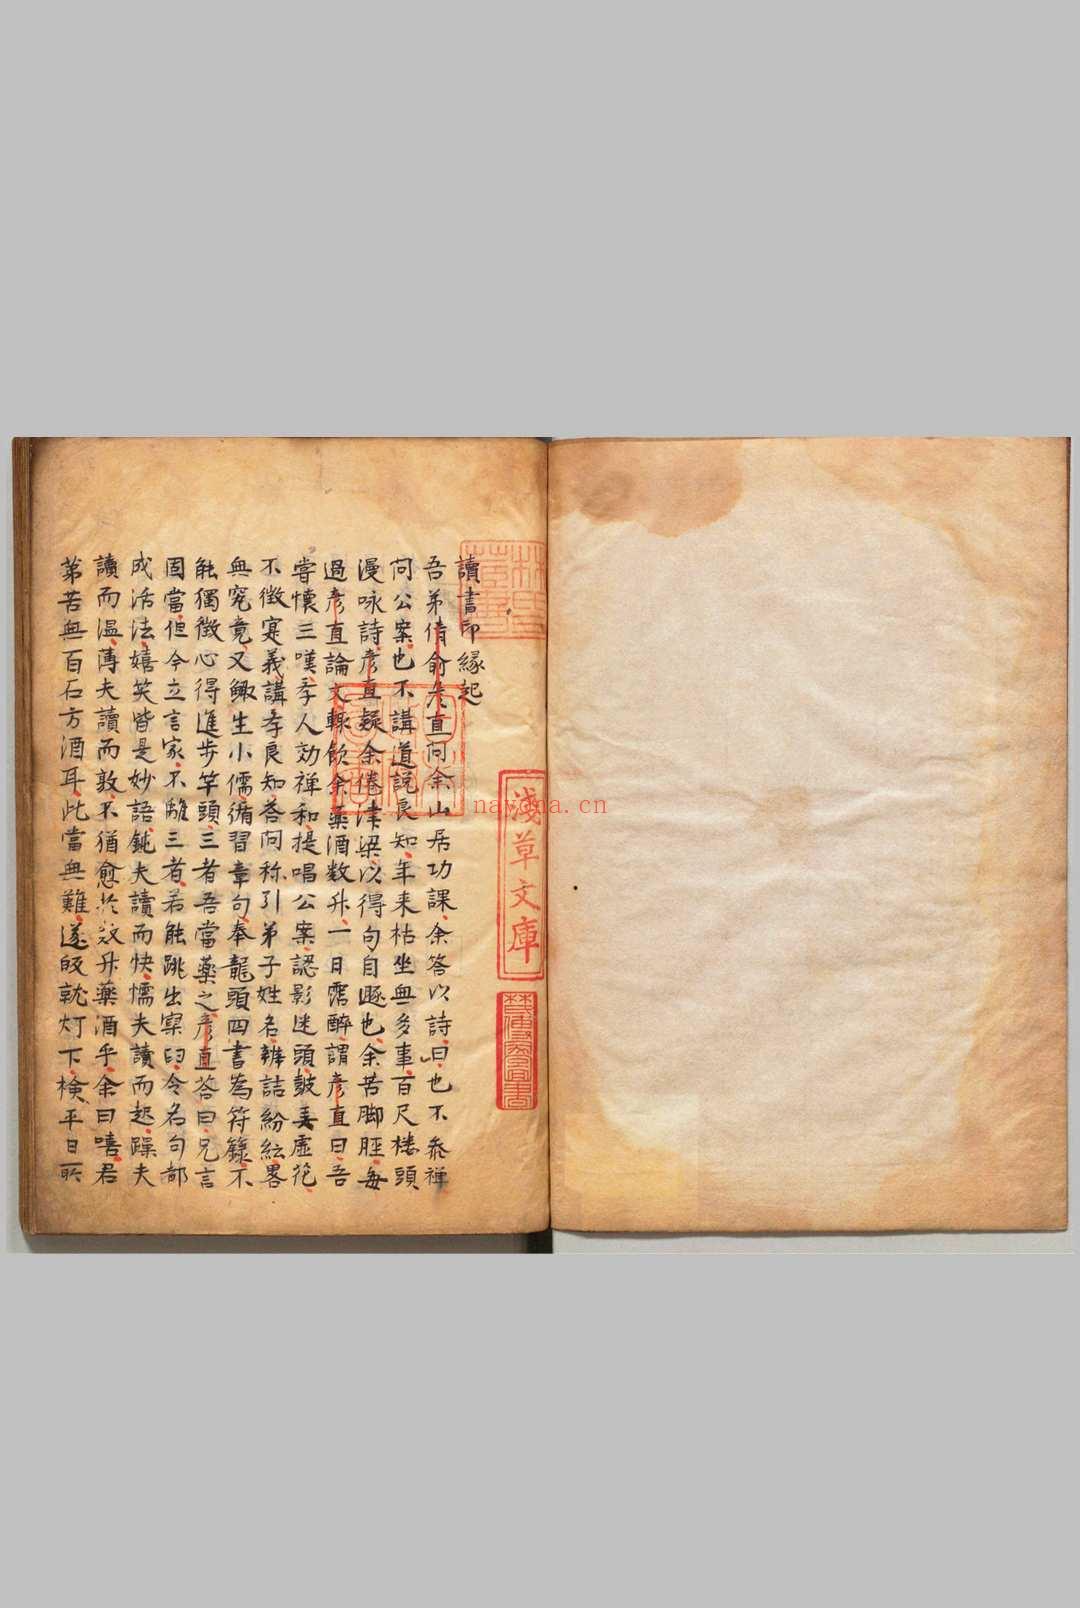 讀書印縁起
吾弟倩俞彦直问余山居功課余答以詩曰也不叅禅
问公案也不講道説良知年来枯坐無多事百尺楼頭
漫咏詩彦直疑余倦津梁以得句自豚也余苦脚脛每
過彦直論文輙飲余薬酒数升一日霑醉謂彦直曰吾
嘗懐三嘆季人効禅和提唱公案認影迷頭皷弄虚花
不徴寔義講孝良知荅问称引弟子姓名辨詰紛紜畧
無究竟又鲰生小儒循習章句奉龍頭四書為符籙不
能獨徴心得進步竿頭三者吾當薬之彦直答曰兄言
固當但今立言家不離三者若能跳出窠臼令名句部
成活法嬉笑皆是妙語鈍夫讀而快懦夫讀而起躁夫
讀而温薄夫讀而敦不猶愈於数升薬酒乎余曰嘻君
第苦無百石方酒耳此當無難遂皈就灯下檢平日所
淺草文庫
nayona.cn